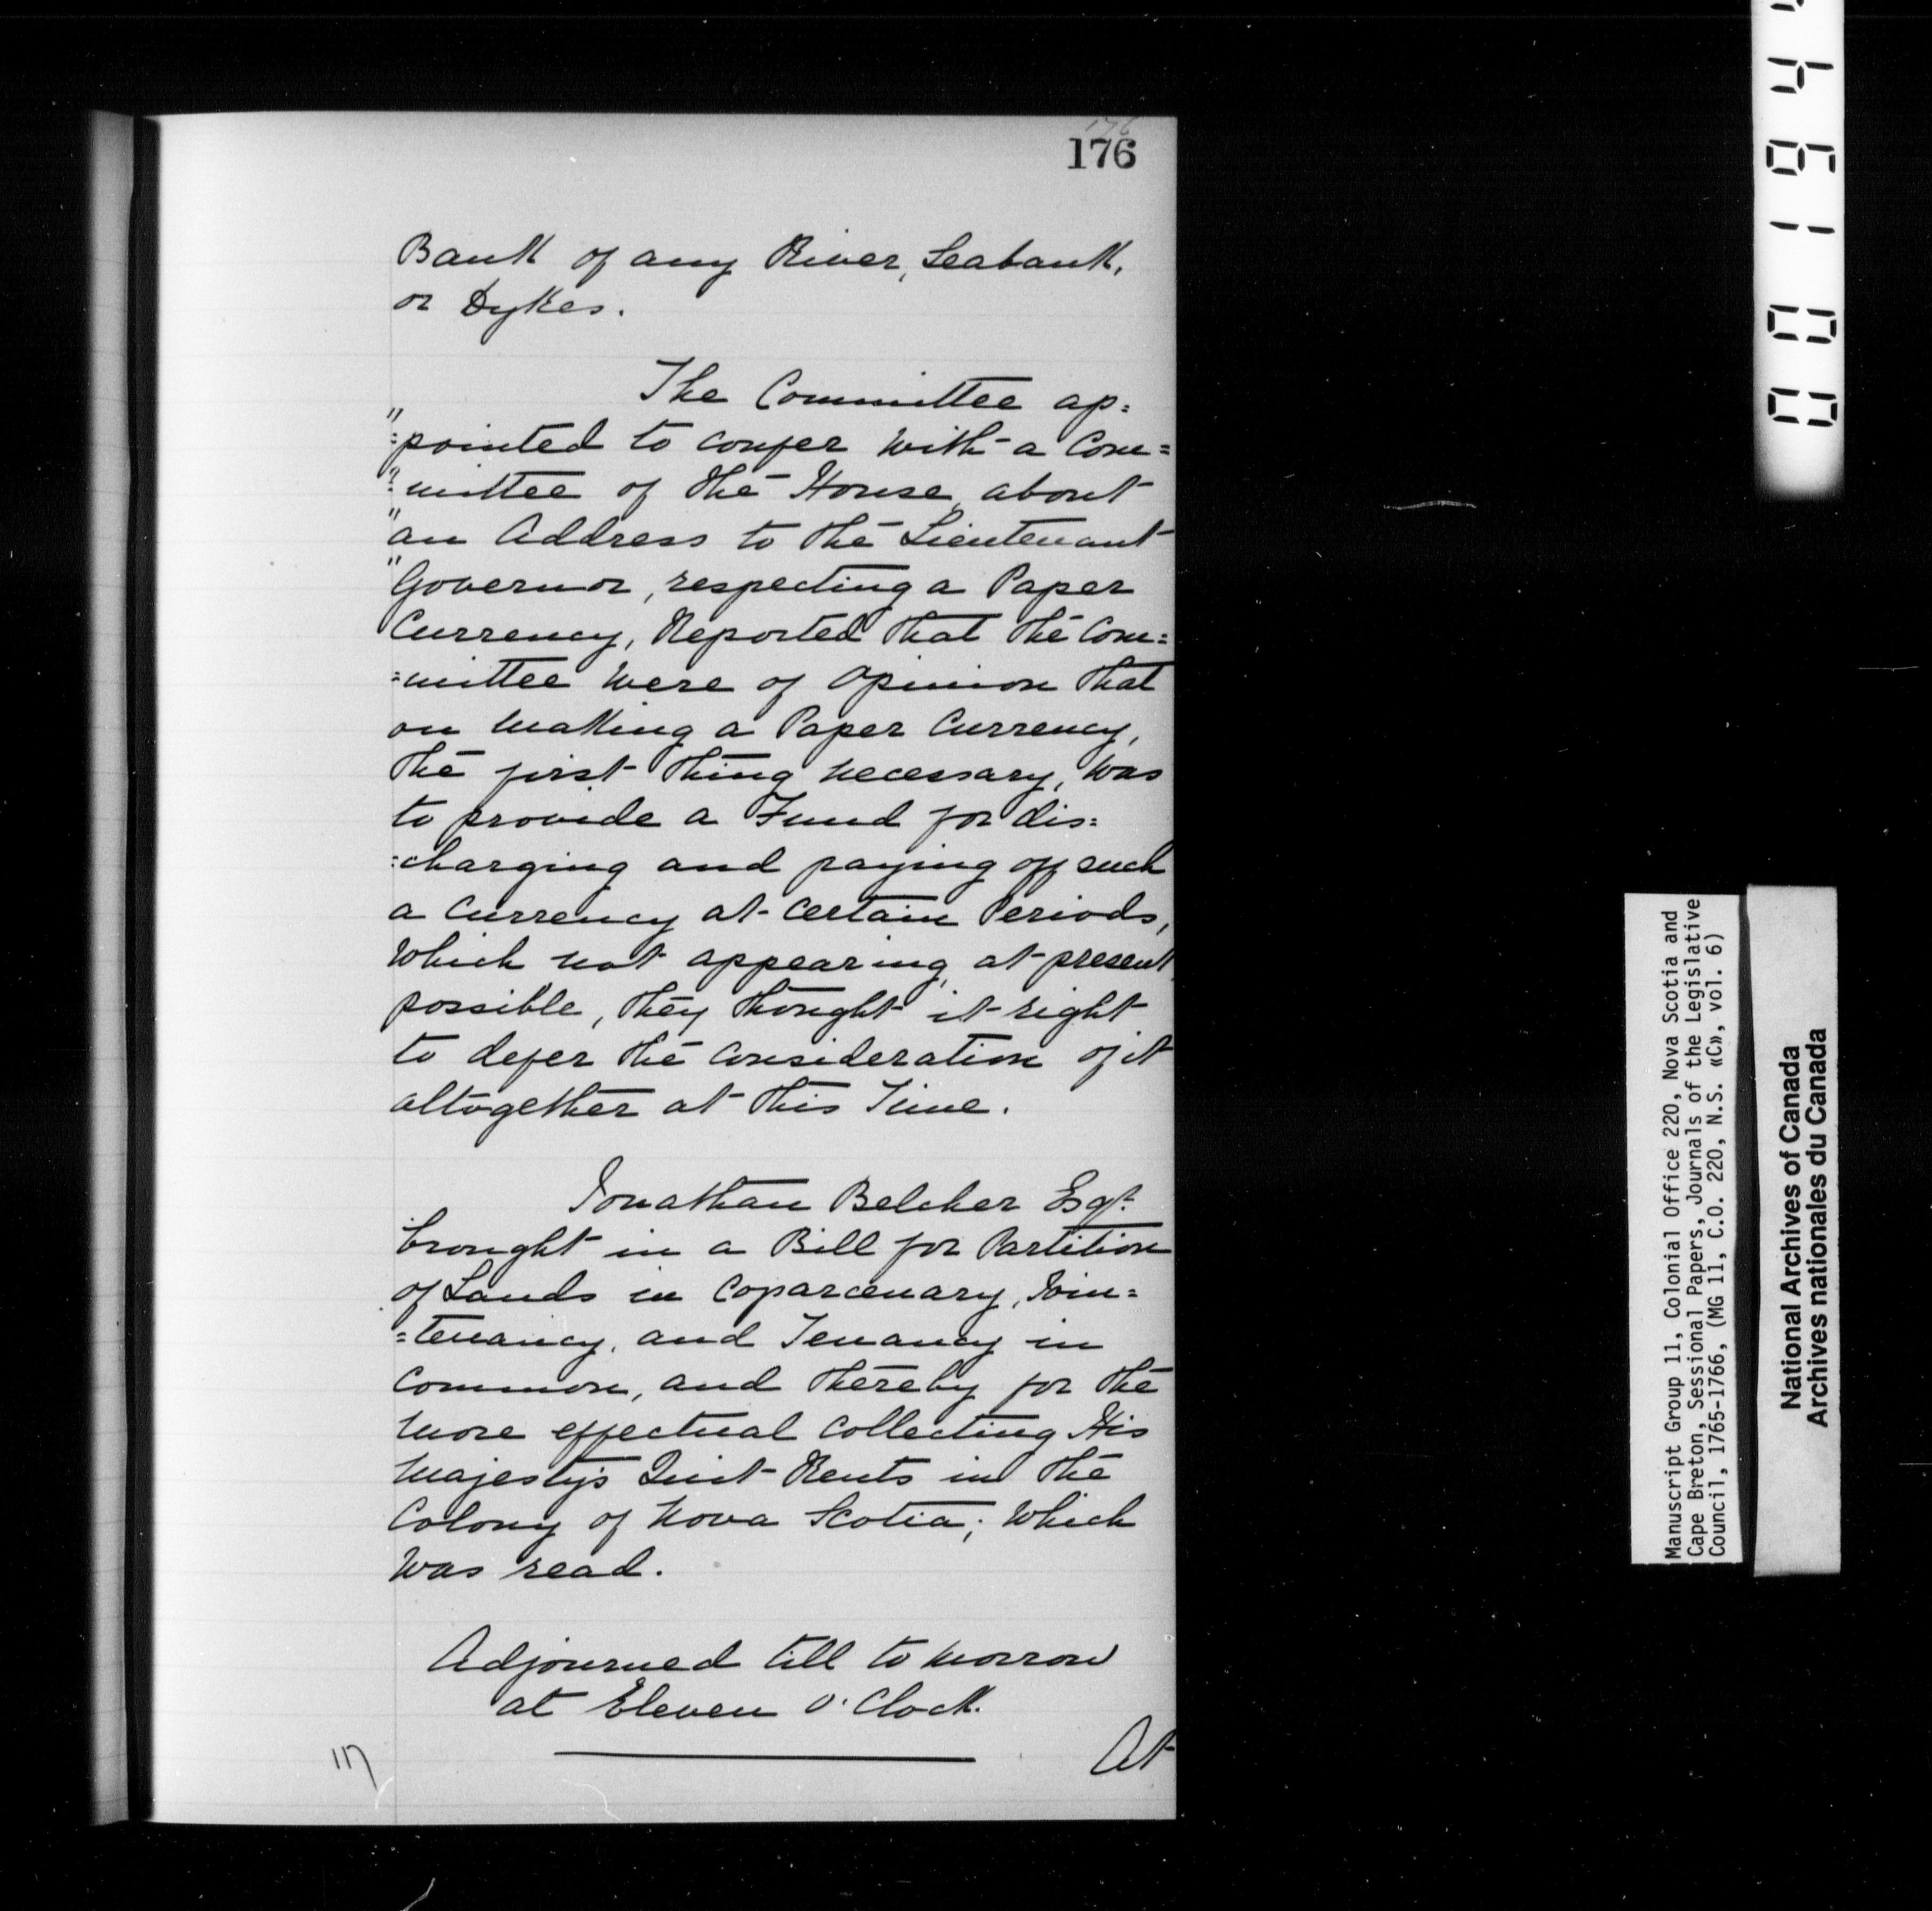 176
176
Bank of any River, Seabank,
or Dykes.
The Committee ap=
"=pointed to confer with a Com=
"=mittee of the House, about
"an Address to the Lieutenant
"Governor, respecting a Paper
Currency, Reported that the Com=
=mittee were of Opinion that
on making a Paper Currency,
the first thing necessary, was
to provide a Fund for dis=
=charging and paying off such
a Currency at certain Periods,
which not appearing, at present
possible, they thought it right
to defer the consideration of it
altogether at this Time.
Jonathan Belcher Esqr.
brought in a Bill for Partition
of Lands in Coparcenary, Join=
=tenancy, and Tenancy in
Common, and thereby for the
more effectual collecting His
Majesty's Quit Rents in the
Colony of Nova Scotia; which
was read.
Adjourned till to morrow
at Eleven O'Clock.
At
117
Manuscript Group 11, Colonial Office 220, Nova Scotia and
Cape Breton, Sessional Papers, Journals of the Legislative
Council, 1765-1766, (MG 11, C.O. 220, N.S. «C», vol. 6)
National Archives of Canada
Archives nationales du Canada
00194